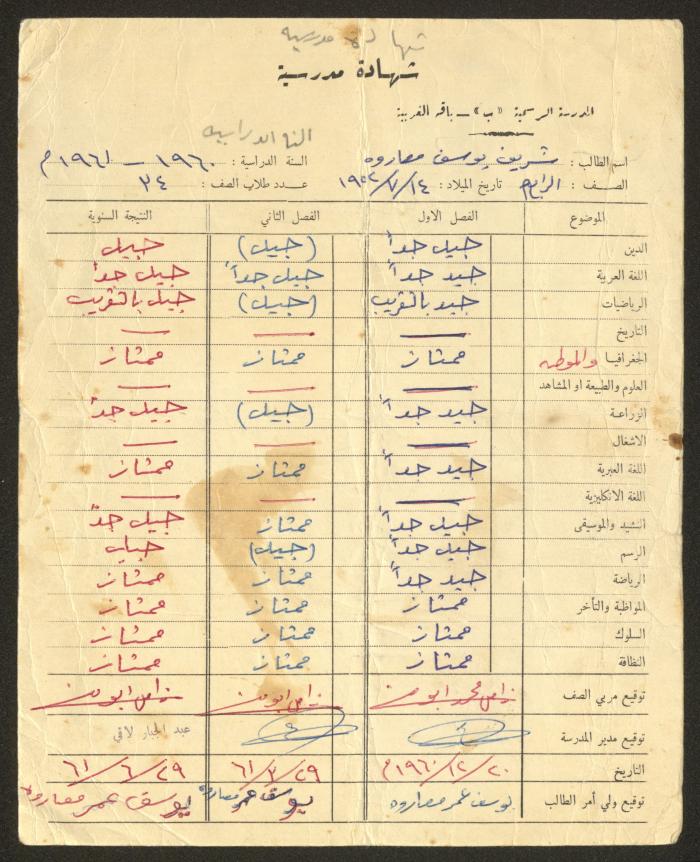 شهادة مدرسية
شهادة مدرسية
المدرسة الرسمية «ب» - باقة الغربية
اسم الطالب : شريف يوسف مصاروه السنة الدراسية : ١٩٦٠ - ١٩٦١م
الصف : الرابع تاريخ الميلاد : ١٤/٧/١٩٥٢ عدد طلاب الصف : ٣٤
الموضوع الفصل الاول الفصل الثاني النتيجة السنوية
الدين جيد جداً (جيد) جيد
اللغة العربية جيد جداً جيد جداً جيد جداً
الرياضيات جيد بالتقريب (جيد) جيد بالتقريب
التاريخ — — —
الجغرافيا والموطن ممتاز ممتاز ممتاز
العلوم والطبيعة او المشاهد — — —
الزراعة جيد جداً (جيد) جيد جداً
الاشغال — — —
اللغة العبرية جيد جداً ممتاز ممتاز
اللغة الانكليزية — — —
النشيد والموسيقى جيد جداً ممتاز جيد جداً
الرسم جيد جداً (جيد) جيد
الرياضة جيد جداً ممتاز ممتاز
المواظبة والتأخر ممتاز ممتاز ممتاز
السلوك ممتاز ممتاز ممتاز
النظافة ممتاز ممتاز ممتاز
توقيع مربي الصف
توقيع مدير المدرسة عبد الجبار لاقي
التاريخ ٢٠/١٢/١٩٦٠م ٢٩/٣/٦١ ٢٩/٦/٦١
توقيع ولي أمر الطالب يوسف عمر مصاروه يوسف عمر مصاروه يوسف عمر مصاروه